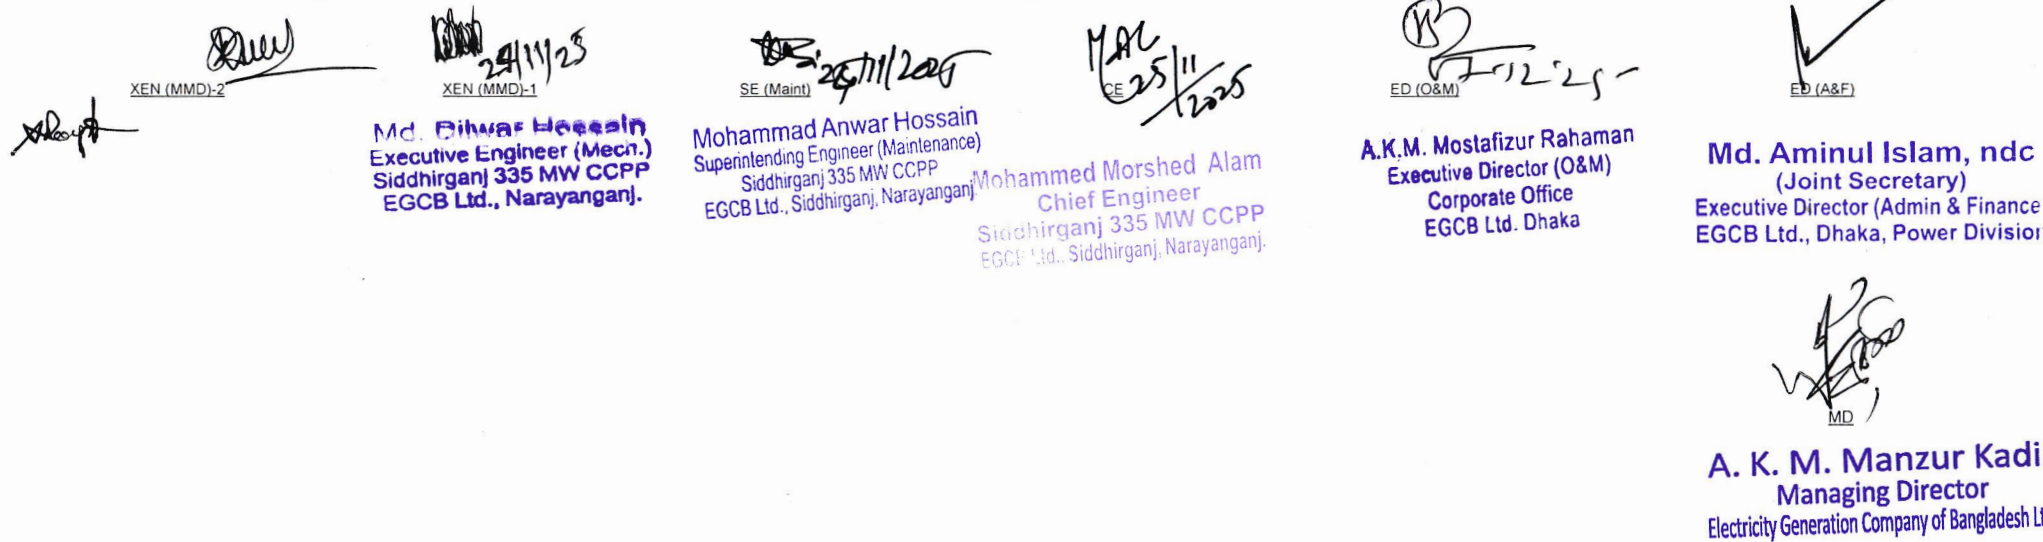 XEN (MMD)-2
XEN (MMD)-1
24/11/25
Md. Dilwar Hossain
Executive Engineer (Mech.)
Siddhirganj 335 MW CCPP
EGCB Ltd., Narayanganj.
SE (Maint)
25/11/2025
Mohammad Anwar Hossain
Superintending Engineer (Maintenance)
Siddhirganj 335 MW CCPP
EGCB Ltd., Siddhirganj, Narayanganj.
CE
25/11/2025
Mohammed Morshed Alam
Chief Engineer
Siddhirganj 335 MW CCPP
EGCB Ltd., Siddhirganj, Narayanganj.
ED (O&M)
A.K.M. Mostafizur Rahaman
Executive Director (O&M)
Corporate Office
EGCB Ltd. Dhaka
ED (A&F)
Md. Aminul Islam, ndc
(Joint Secretary)
Executive Director (Admin & Finance
EGCB Ltd., Dhaka, Power Division
MD
A. K. M. Manzur Kadi
Managing Director
Electricity Generation Company of Bangladesh Lt